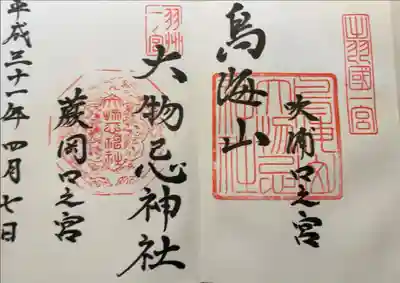 出羽國一宮
鳥海山
吹浦口之宮
羽州一ノ宮
大物忌神社
蕨岡口之宮
平成三十一年四月七日